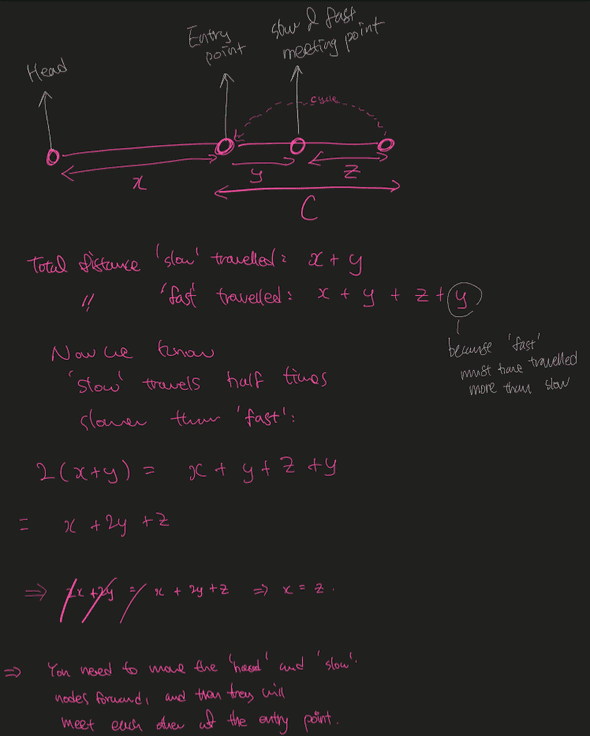 Head
Entry
point
slow & fast
meeting point
cycle
x
y
z
C
Total distance 'slow' travelled: x + y
〃 'fast' travelled: x + y + z + y
because 'fast'
must have travelled
more than slow
Now we know
'slow' travels half times
slower than 'fast':
2(x+y) = x + y + z + y
= x + 2y + z
⇒ 2x + 2y = x + 2y + z ⇒ x = z.
⇒ You need to move the 'head' and 'slow'
nodes forward, and then they will
meet each other at the entry point.